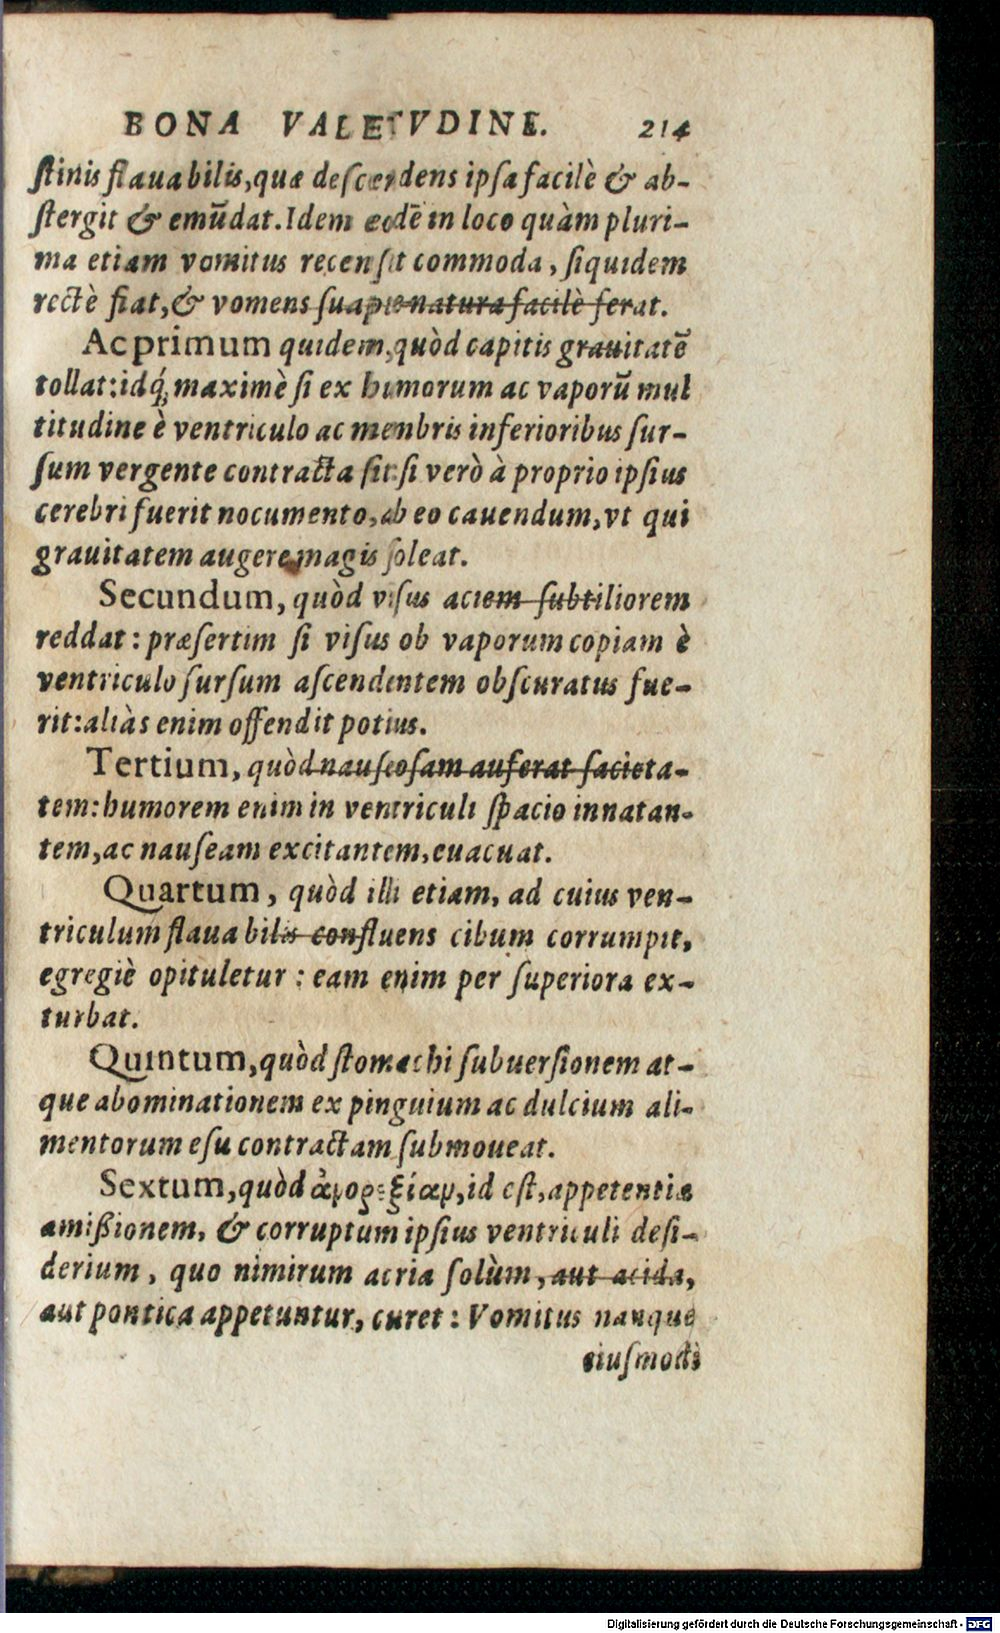 BONA VALETVDINE. 214
ſtinis flaua bilis, quæ deſcendens ipſa facilè & ab-
ſtergit & emũdat. Idem eodẽ in loco quàm pluri-
ma etiam vomitus recenſit commoda, ſiquidem
rectè fiat, & vomens ſuapte natura facilè ferat.
Ac primum quidem, quòd capitis grauitatẽ
tollat: idq́; maximè ſi ex humorum ac vaporũ mul
titudine è ventriculo ac menbris inferioribus ſur-
ſum vergente contracta ſit: ſi verò à proprio ipſius
cerebri fuerit nocumento, ab eo cauendum, vt qui
grauitatem augere magis ſoleat.
Secundum, quòd viſus aciem ſubtiliorem
reddat: præſertim ſi viſus ob vaporum copiam è
ventriculo ſurſum aſcendentem obſcuratus fue-
rit: aliàs enim offendit potius.
Tertium, quòd nauſeoſam auferat ſacieta-
tem: humorem enim in ventriculi ſpacio innatan-
tem, ac nauſeam excitantem, euacuat.
Quartum, quòd illi etiam, ad cuius ven-
triculum flaua bilis confluens cibum corrumpit,
egregiè opituletur: eam enim per ſuperiora ex-
turbat.
Quintum, quòd ſtomachi ſubuerſionem at-
que abominationem ex pinguium ac dulcium ali-
mentorum eſu contractam ſubmoueat.
Sextum, quòd ἀνορεξίαν, id eſt, appetentiæ
amißionem, & corruptum ipſius ventriculi deſi-
derium, quo nimirum acria ſolùm, aut acida,
aut pontica appetuntur, curet: Vomitus nanque
eiuſmodi
Digitalisierung gefördert durch die Deutsche Forschungsgemeinschaft - DFG